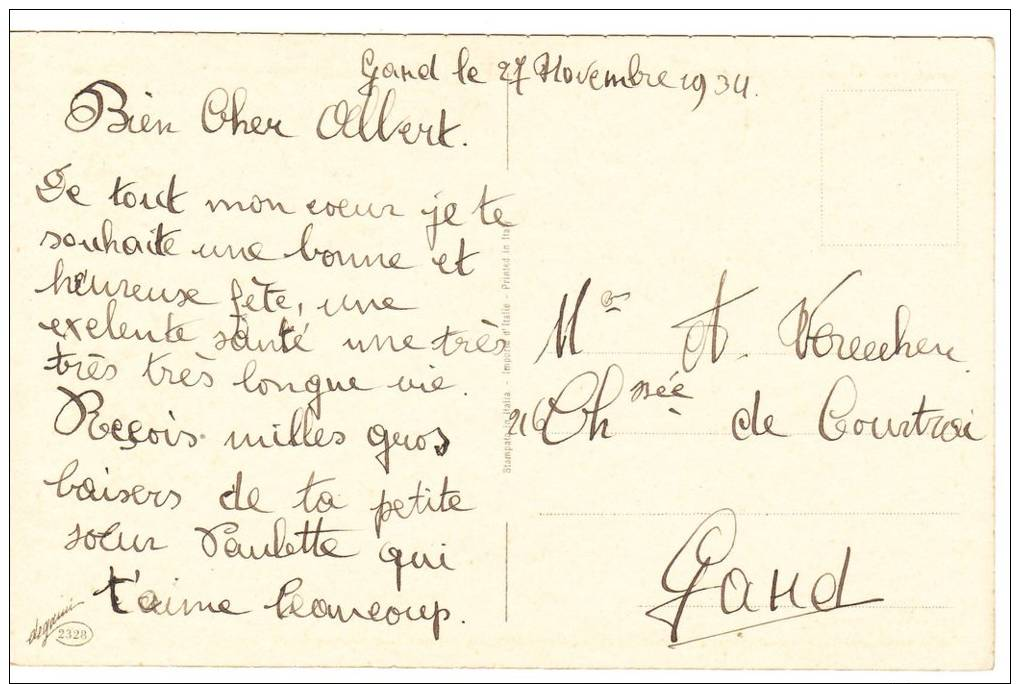 Gand le 27 Novembre 1934.
Bien Cher Albert.
De tout mon coeur je te
souhaite une bonne et
heureuse fête, une
exelente santé une très
très très longue vie.
Reçois milles gros
baisers de ta petite
soeur Paulette qui
t'aime beaucoup.
degami
2328
Stampato in Italia - Importé d'Italie - Printed in Ita
A.
216 Ch ssée de Courtrai
Gand